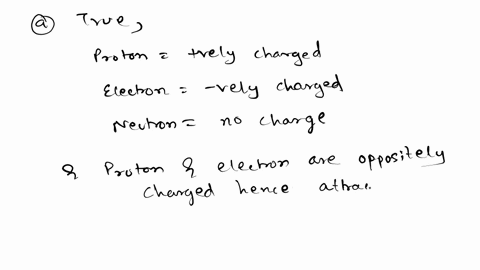 ⓐ True,
Proton = +vely charged
Electron = -vely charged
Neutron = no charge
& Proton & electron are oppositely
charged hence attrac